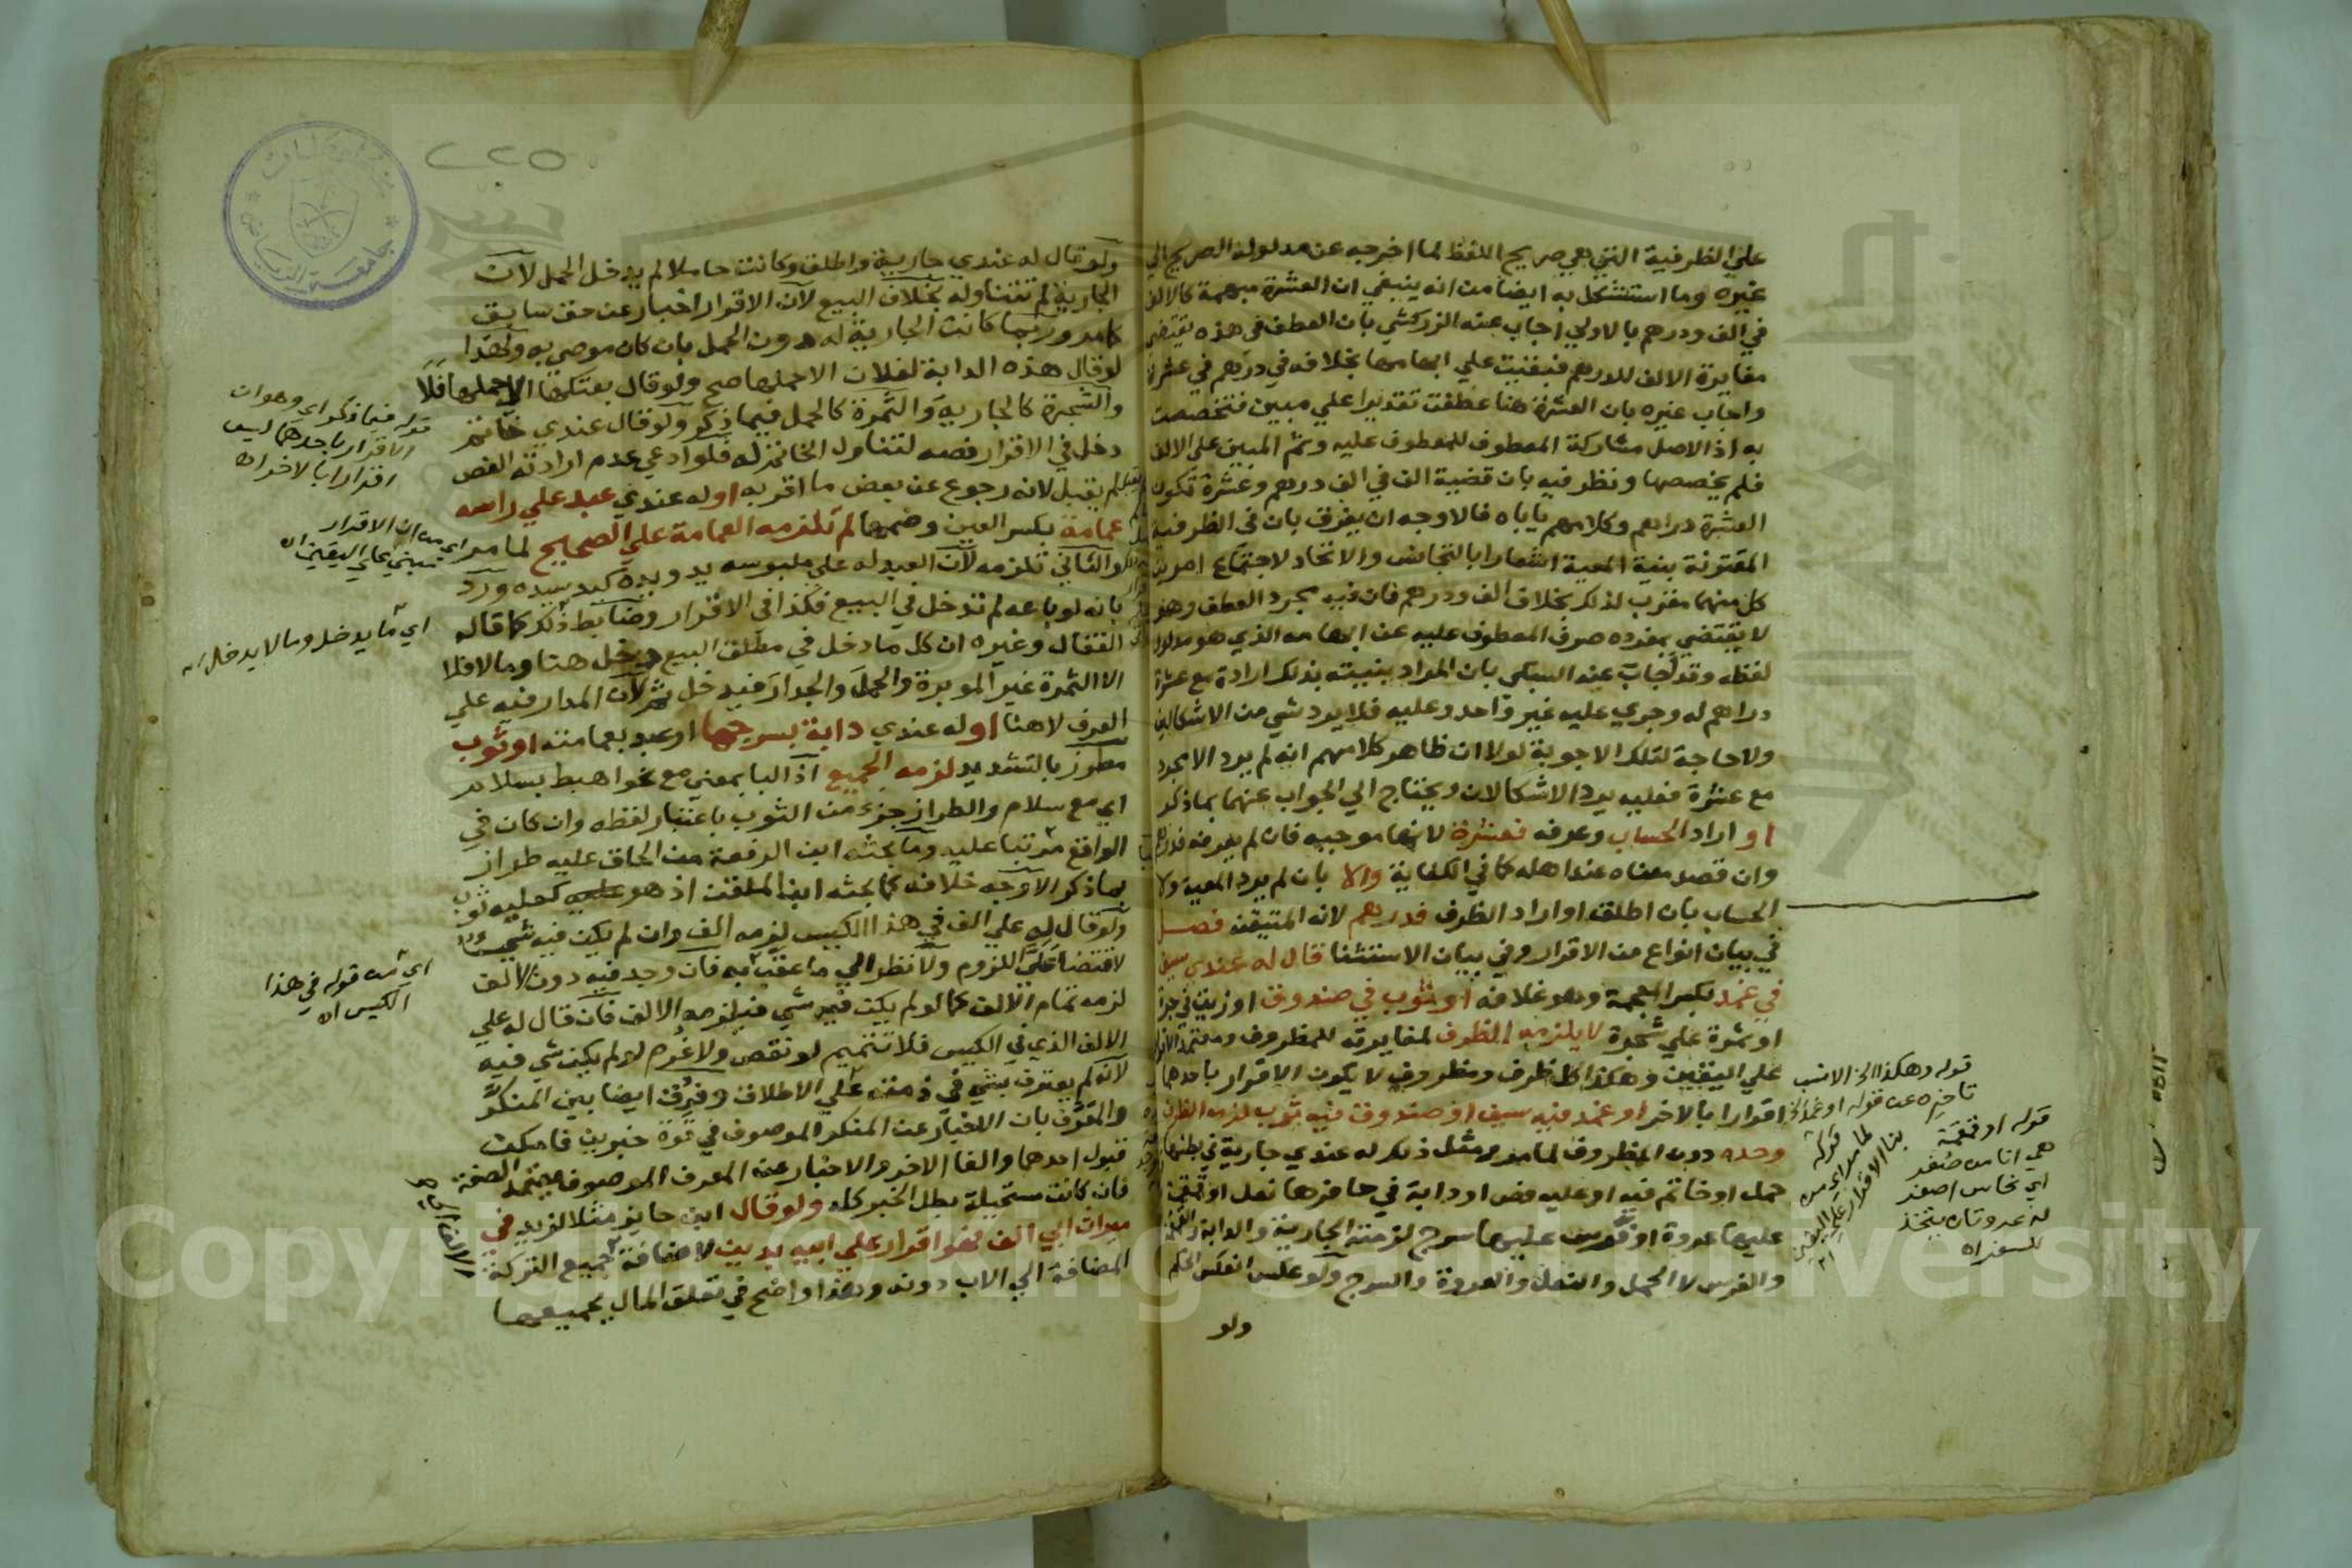 علي الظرفية التي هي صريح اللفظ لما اخرجه عن مدلوله الصريح الي
غيره وما استشكل به ايضا من انه ينبغي ان العشرة مبهمة كالالف
في الف ودرهم بالاولي اجاب عنه الزركشي بان العطف في هذه يقتضي
مغايرة الالف للدرهم فبقيت علي ابهامها بخلافه في درهم في عشرة
واجاب غيره بان العشرة هنا عطفت تقديرا علي مبين فتخصصت
به اذ الاصل مشاركة المعطوف للمعطوف عليه وثم المبين علي الالف
فلم يخصصها ونظر فيه بان قضية الف في الف درهم وعشرة تكون
العشرة دراهم وكلامهم ياباه فالاوجه ان يفرق بان في الظرفية
المقترنة بنية المعية اشعارا بالتجانس والاتحاد لاجتماع امرين
كل منهما مقرب لذلك بخلاف الف ودرهم فان فيه مجرد العطف وهو
لا يقتضي بمفرده صرف المعطوف عليه عن ابهامه الذي هو مدلول
لفظه وقد اجاب عنه السبكي بان المراد بنيته بذلك ارادة مع عشرة
دراهم له وجري عليه غير واحد وعليه فلا يرد شي من الاشكالين
ولا حاجة لتلك الاجوبة لولا ان ظاهر كلامهم انه لم يرد الا مجرد
مع عشرة فعليه يرد الاشكالان ويحتاج الي الجواب عنهما بما ذكر
او اراد الحساب وعرفه فعشرة لانها موجبه فان لم يعرفه فدرهم
وان قصد معناه عند اهله كما في الكفاية والا بان لم يرد المعية ولا
الحساب بان اطلق او اراد الظرف فدرهم لانه المتيقن فصل
في بيان انواع من الاقرار وفي بيان الاستثنا قال له عندي سيف
في غمد بكسر المعجمة وهو غلافه او ثوب في صندوق او زيت في جرة
او ثمرة علي شجرة لا يلزمه الظرف لمغايرته للمظروف ومعتمد الاقرار
علي اليقين وهكذا كل ظرف ومظروف لا يكون الاقرار باحدهما
اقرارا بالاخر او غمد فيه سيف او صندوق فيه ثوب لزمه الظرف
وحده دون المظروف لما مر ومثل ذلك له عندي جارية في بطنها
حمل او خاتم فيه او عليه فص او دابة في حافرها نعل او قمقمة
عليها عروة او فرس عليها سرج لزمته الجارية والدابة والقمقمة
والفرس لا الحمل والنعل والعروة والسرج ولو عكس انعكس الحكم
ولو
قوله وهكذا الخ الانسب
تاخيره عن قوله او غمد الخ
قوله لما مر اي من
بنا الاقرار علي اليقين اه
قوله او قمقمة
هي انا من صفر
اي نحاس اصفر
له عروتان يتخذ
للسفر اه
٢٢٥
ولو قال له عندي جارية واطلق وكانت حاملا لم يدخل الحمل لان
الجارية لم تتناوله بخلاف البيع لان الاقرار اخبار عن حق سابق
كما مر وربما كانت الجارية له دون الحمل بان كان موصي به ولهذا
لو قال هذه الدابة لفلان الا حملها صح ولو قال بعتكها الا حملها فلا
والشجرة كالجارية والثمرة كالحمل فيما ذكر ولو قال عندي خاتم
دخل في الاقرار فصه لتناول الخاتم له فلو ادعي عدم ارادته الفص
لم يقبل لانه رجوع عن بعض ما اقر به او له عندي عبد علي راسه
عمامة بكسر العين وضمها لم تلزمه العمامة علي الصحيح لما مر
والثاني تلزمه لان العبد له علي ملبوسه يد ويده كيد سيده ورد
بانه لو باعه لم تدخل في البيع فكذا في الاقرار وضابط ذلك كما قاله
القفال وغيره ان كل ما دخل في مطلق البيع دخل هنا وما لا فلا
الا الثمرة غير الموبرة والحمل والجدار فيدخل ثم لان المدار فيه علي
العرف لا هنا او له عندي دابة بسرجها او عبد بعمامته او ثوب
مطرز بالتشديد لزمه الجميع اذ البا بمعني مع نحو اهبط بسلام
اي مع سلام والطراز جزء من الثوب باعتبار لفظه وان كان في
الواقع مرتبا عليه وما بحثه ابن الرفعة من الحاق عليه طراز
بما ذكر الاوجه خلافه كما بحثه ابن الملقن اذ هو كعليه ثوب
ولو قال له علي الف في هذا الكيس لزمه الف وان لم يكن فيه شي
لاقتضا علي اللزوم ولا نظر الي ما عقب به فان وجد فيه دون الالف
لزمه تمام الالف كما لو لم يكن فيه شي فيلزمه الالف فان قال له علي
الالف الذي في الكيس فلا تتميم لو نقص ولا غرم لو لم يكن شي فيه
لانه لم يعترف بشي في ذمته علي الاطلاق وفرق ايضا بين المنكر
والمعرف بان الاخبار عن المنكر الموصوف في قوة خبرين فامكن
قبول احدهما والغا الاخر والاخبار عن المعرف الموصوف يعتمد الصفة
فان كانت مستحيلة بطل الخبر كله ولو قال ابن حايز مثلا لزيد في
ميراث ابي الف فهو اقرار علي ابيه بدين لاضافة جميع التركة
المضافة الي الاب دونه وهذا واضح في تعلق المال بجميعها
قوله فيما ذكر اي وهو ان
الاقرار باحدهما ليس
اقرارا بالاخر اه
اي من ان الاقرار
مبني علي اليقين اه
اي ما يدخل وما لا يدخل اه
اي من قوله في هذا
الكيس اه